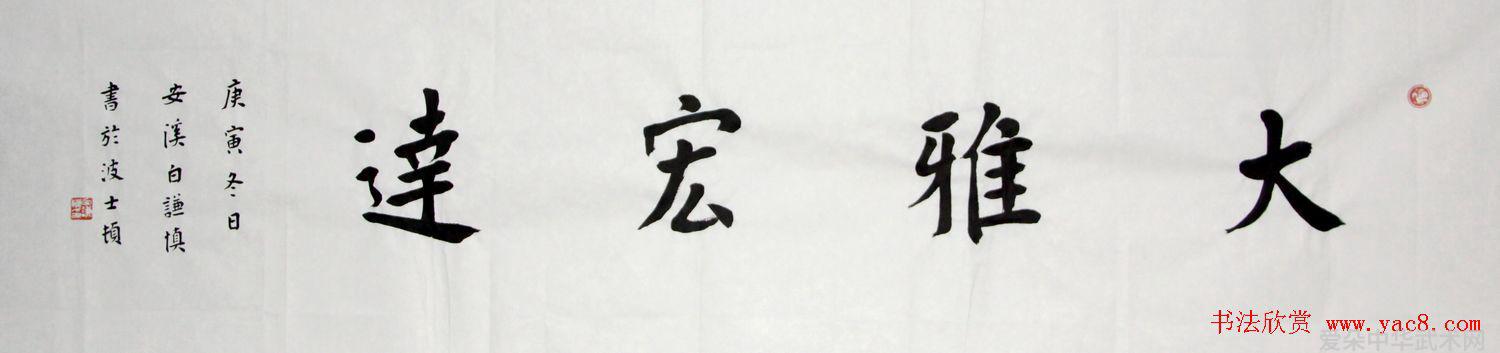 大雅宏達
庚寅冬日
安溪白謙慎
書於波士頓
书法欣赏 www.yac8.com
爱柔中华武术网